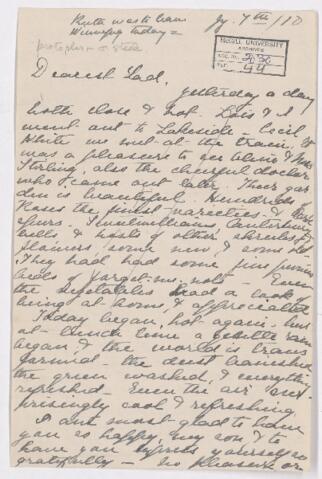 Ruth wants to leave
Winnipeg today =
Jy. 7th/10
McGILL UNIVERSITY
ARCHIVES
ACC. NO.
REF. 44
Dearest Lad.
Yesterday a day
both close & hot. Lois & I
went out to Lakeside - Cecil
White we met at the train. It
was a pleasure to see &
Stirling, also the cheerful doctor
who came out later. Their gar
den is beautiful. Hundreds
Roses the finest varieties & Lark
spurs. Sweetwilliams, Canterbury
bells & lots of other shrubs &
flowers some new & some old.
They had had some fine
beds of forget-me-nots - Even
the vegetables had a look of
being at home, & appreciated
Today began, hot again, but
at lunch time a gentle rain
began & the world is trans
formed - the dust banished
the green washed, & everything
refreshed - Even the air sur
prisingly cool & refreshing.
I am most glad to have
you so happy, my son & to
have you express yourself so
gratefully - no pleasure or